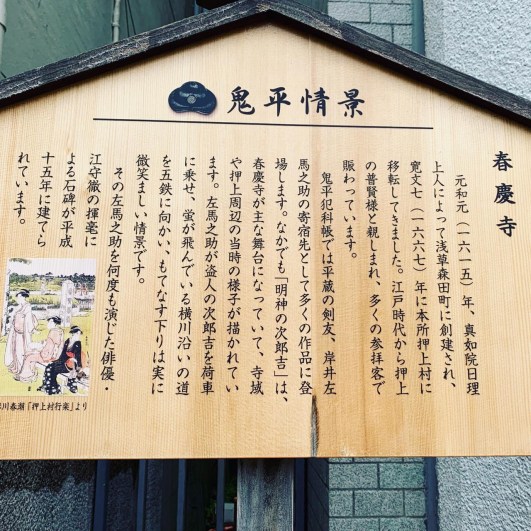 鬼平情景
春慶寺
元和元(一六一五)年、真如院日理
上人によって浅草森田町に創建され、
寛文七(一六六七)年に本所押上村に
移転してきました。江戸時代から押上
の普賢様と親しまれ、多くの参拝客で
賑わっています。
鬼平犯科帳では平蔵の剣友、岸井左
馬之助の寄宿先として多くの作品に登
場します。なかでも「明神の次郎吉」は、
春慶寺が主な舞台になっていて、寺域
や押上周辺の当時の様子が描かれてい
ます。左馬之助が盗人の次郎吉を荷車
に乗せ、蛍が飛んでいる横川沿いの道
を五鉄に向かい、もてなす下りは実に
微笑ましい情景です。
その左馬之助を何度も演じた俳優・
江守徹の揮毫に
よる石碑が平成
十五年に建てら
れています。
川春潮「押上村行楽」より